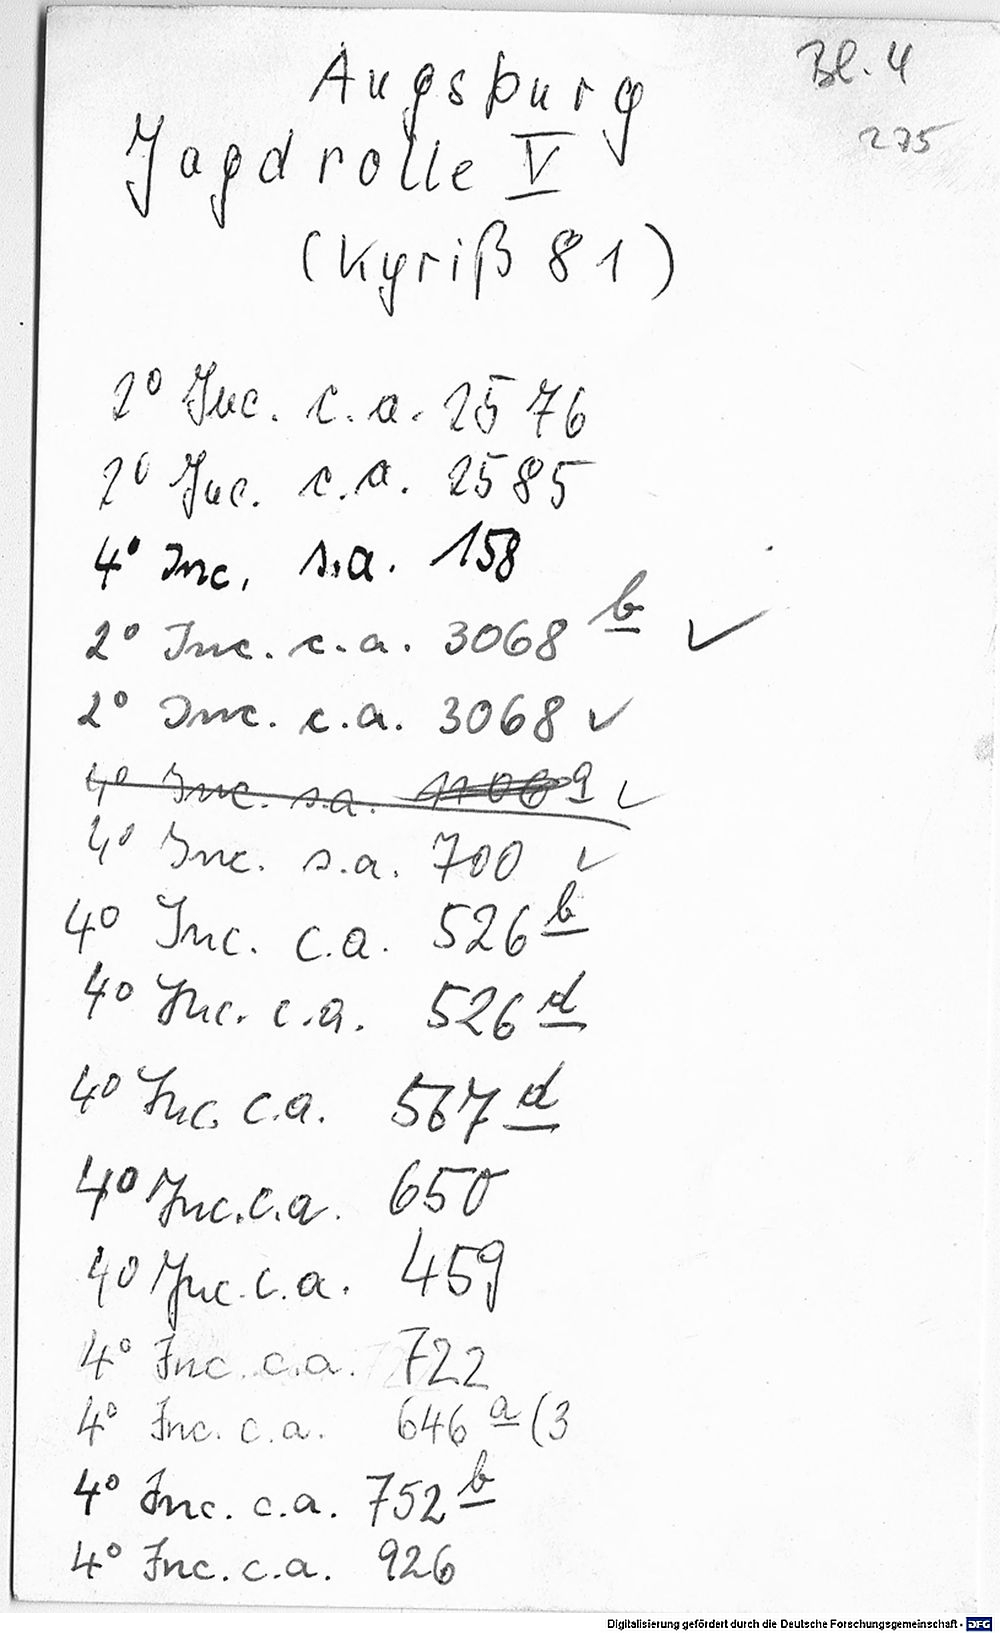 Bl. 4
275
Augsburg
Jagdrolle V
(Kyriß 81)
2° Inc. c.a. 2576
2° Inc. c.a. 2585
4° Inc. s.a. 158
2° Inc. c.a. 3068 b ✓
2° Inc. c.a. 3068 ✓
4° Inc. s.a. ✓
4° Inc. s.a. 700 ✓
4° Inc. c.a. 526 b
4° Inc. c.a. 526 d
4° Inc. c.a. 567 d
4° Inc. c.a. 650
4° Inc. c.a. 459
4° Inc. c.a. 722
4° Inc. c.a. 646 a (3
4° Inc. c.a. 752 b
4° Inc. c.a. 926
Digitalisierung gefördert durch die Deutsche Forschungsgemeinschaft - DFG